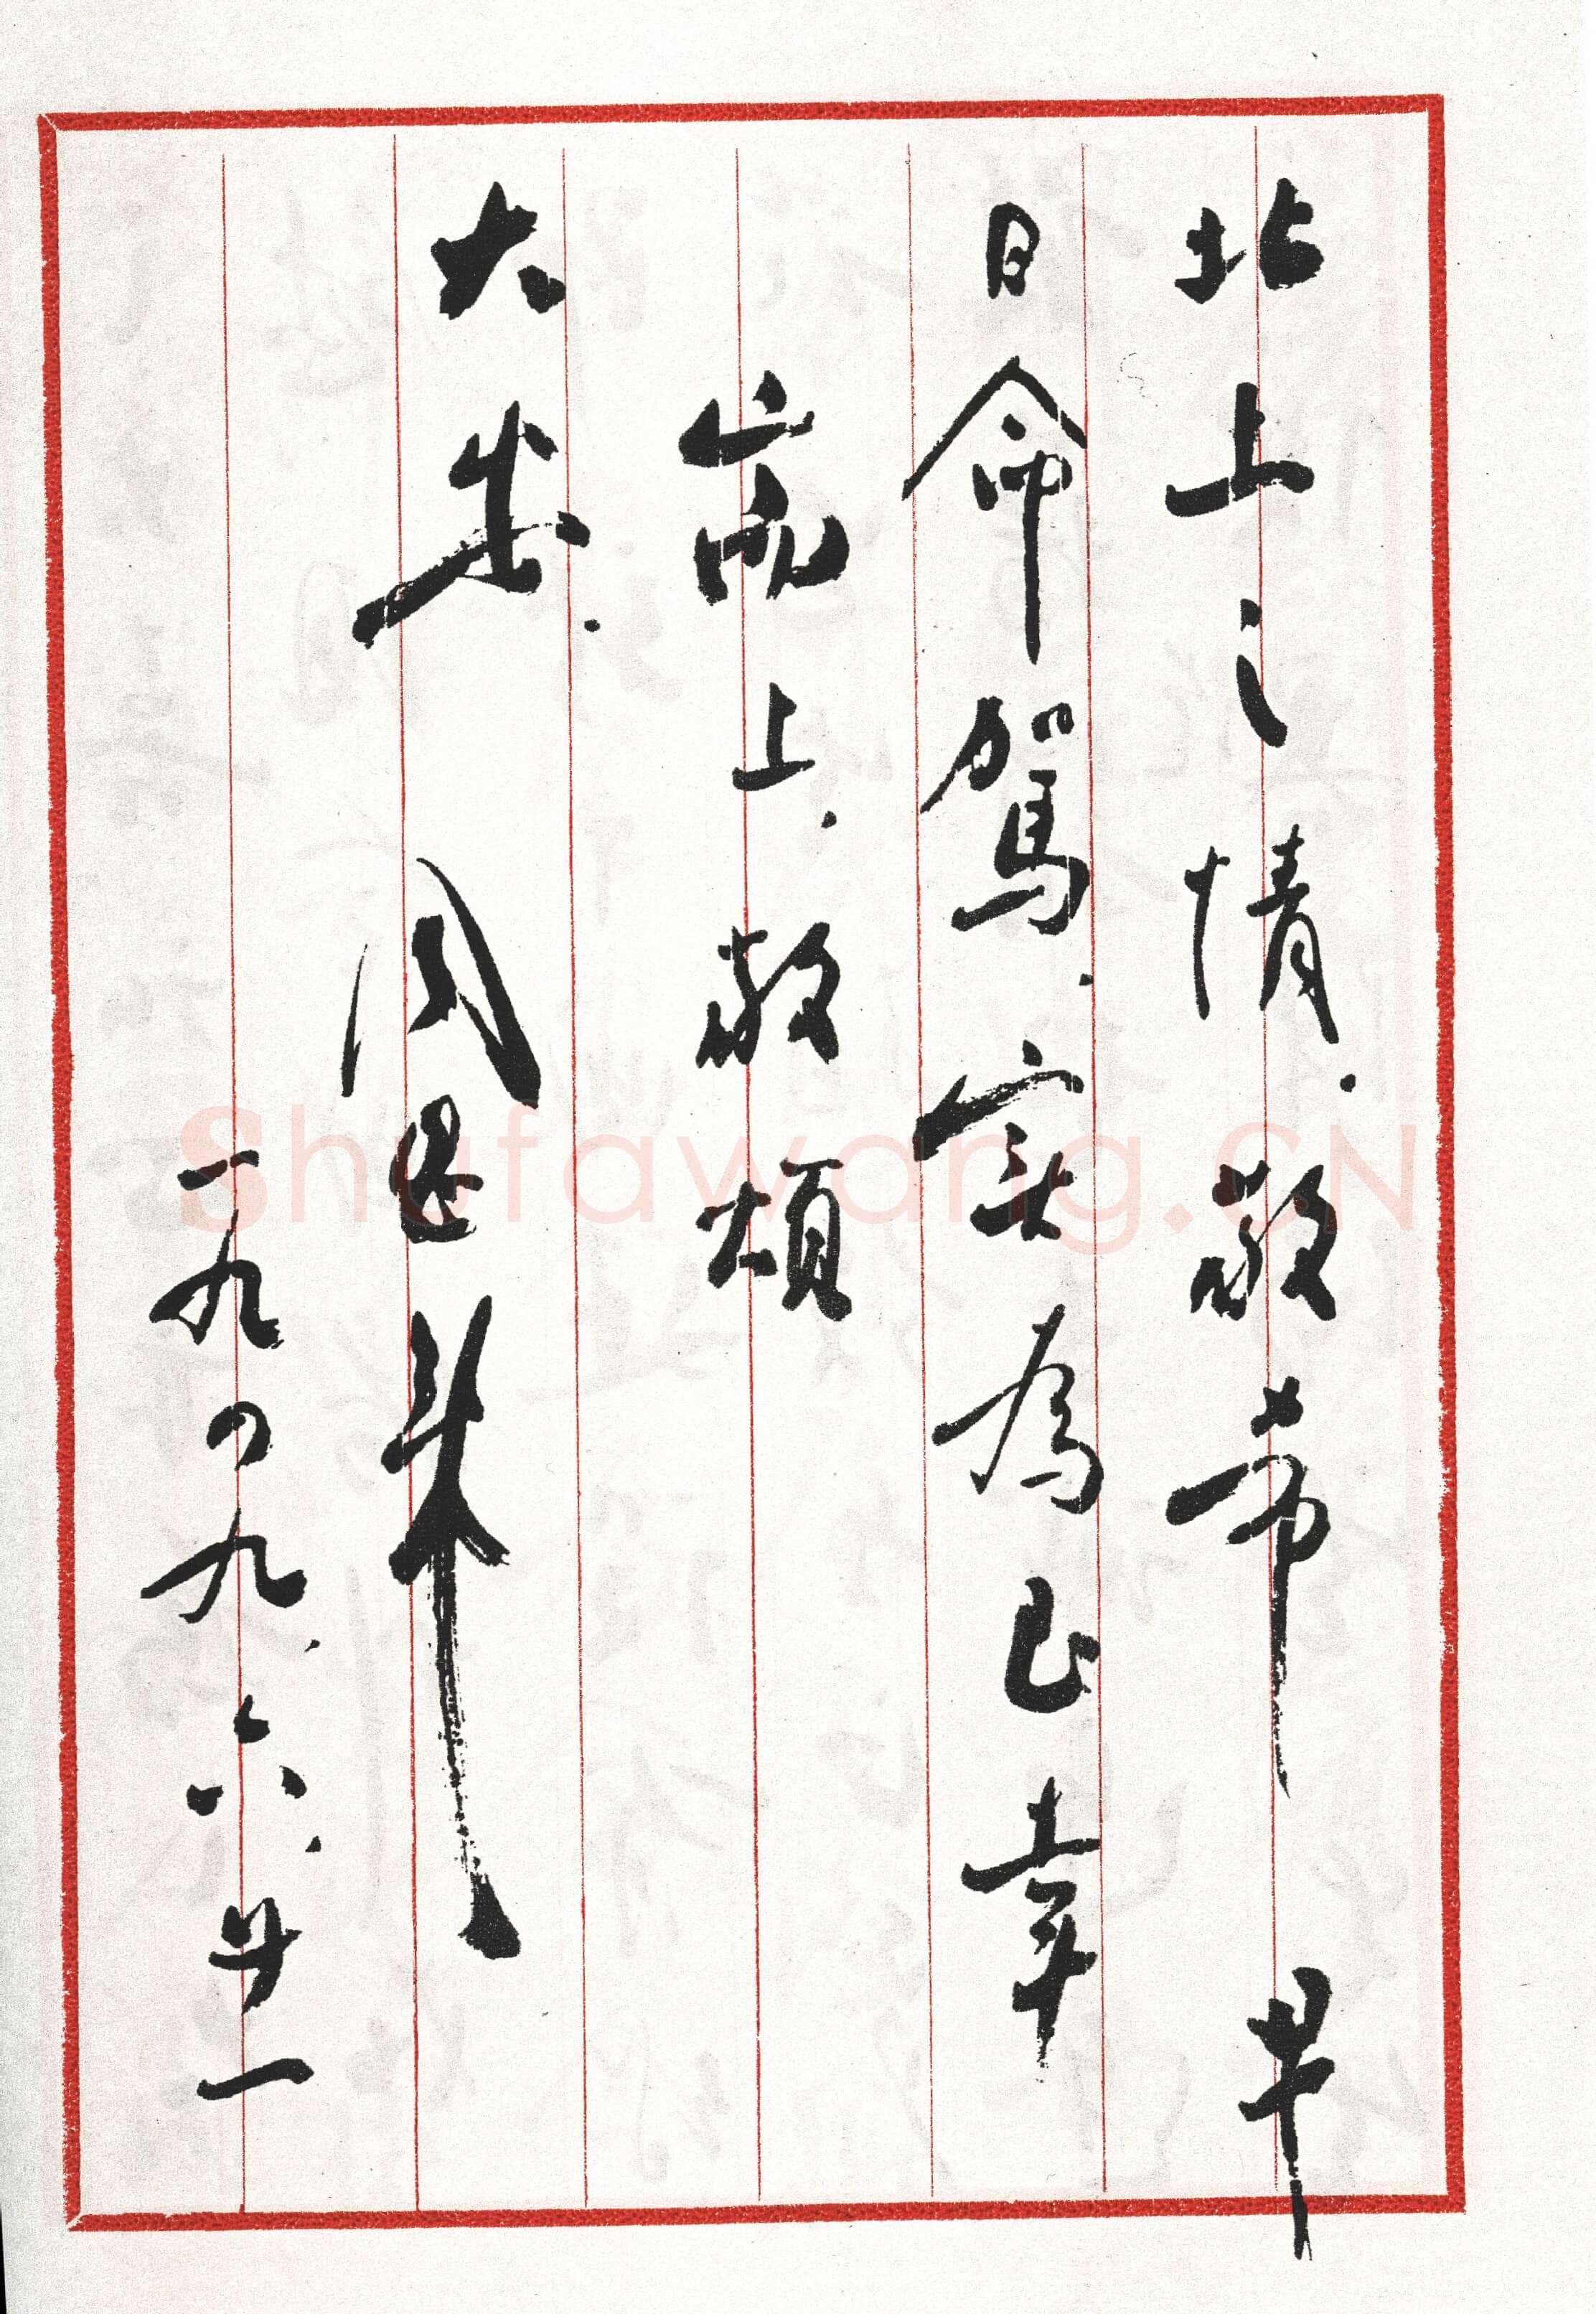 北上之情.敬希早
日命駕.实為至幸
耑上.敬頌
大安.周恩来
一九四九.六.廿一
Shufawang.CN